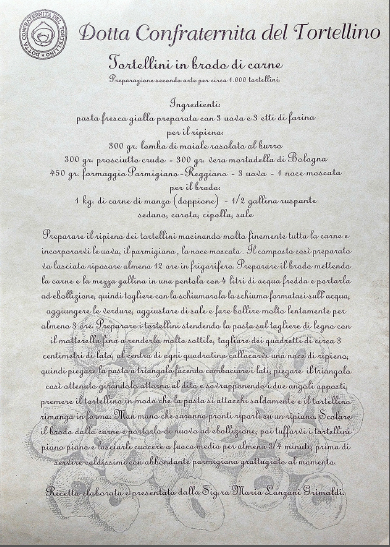 DOTTA CONFRATERNITA DEL TORTELLINO
Dotta Confraternita del Tortellino
Tortellini in brodo di carne
Preparazione secondo arte per circa 1.000 tortellini.
Ingredienti:
pasta fresca gialla preparata con 3 uova e 3 etti di farina
per il ripieno:
300 gr. lombo di maiale rosolato al burro
300 gr. prosciutto crudo - 300 gr. vera mortadella di Bologna
450 gr. formaggio Parmigiano-Reggiano - 3 uova - 1 noce moscata
per il brodo:
1 kg. di carne di manzo (doppione) - 1/2 gallina ruspante
sedano, carota, cipolla, sale
Preparare il ripieno dei tortellini macinando molto finemente tutta la carne e
incorporarvi le uova, il parmigiano, la noce moscata. Il composto così preparato
va lasciato riposare almeno 12 ore in frigorifero. Preparare il brodo mettendo
la carne e la mezza gallina in una pentola con 4 litri di acqua fredda e portarla
ad ebollizione, quindi togliere con la schiumarola la schiuma formatasi sull'acqua,
aggiungere le verdure, aggiustare di sale e fare bollire molto lentamente per
almeno 3 ore. Preparare i tortellini stendendo la pasta sul tagliere di legno con
il matterello fino a renderla molto sottile, tagliare dei quadretti di circa 3
centimetri di lato, al centro di ogni quadratino collocare una noce di ripieno,
quindi piegare la pasta a triangolo facendo combaciare i lati, piegare il triangolo
così ottenuto girandolo attorno al dito e sovrapponendo i due angoli opposti,
premere il tortellino in modo che la pasta si attacchi saldamente e il tortellino
rimanga in forma. Man mano che saranno pronti riporli su un ripiano. Scolare
il brodo dalla carne e portarlo di nuovo ad ebollizione, poi tuffarvi i tortellini
piano piano e lasciarli cuocere a fuoco medio per almeno 3/4 minuti, prima di
servire caldissimi con abbondante parmigiano grattugiato al momento.
Ricetta elaborata e presentata dalla Sig.ra Maria Lanzoni Grimaldi.